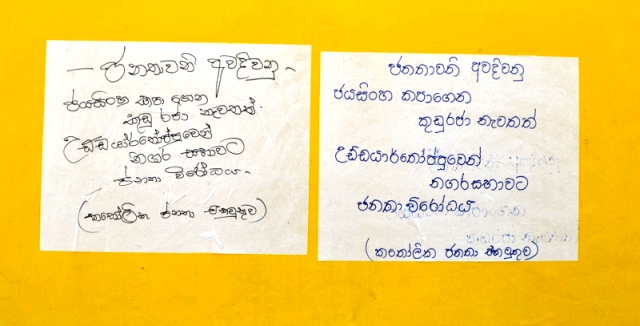 ජනතාවනි අවදිවනු
ජයසිංහ කපාගෙන
කුඩු රජා නැවතත්
උඩ්ඩයාර්තෝප්පුවෙන්
නගර සභාවට
ජනතා විරෝධය
(කතෝලික ජනතා එකමුතුව)
ජනතාවනි අවදිවනු
ජයසිංහ කපාගෙන
කුඩුරජා නැවතත්
උඩ්ඩයාර්තෝප්පුවෙන්
නගරසභාවට
ජනතා විරෝධය
(කතෝලික ජනතා එකමුතුව)